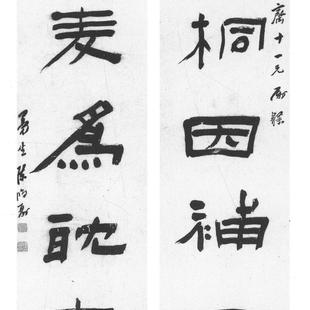 十一兄屬隸
桐因補
麦爲耽
曼生陳鴻壽